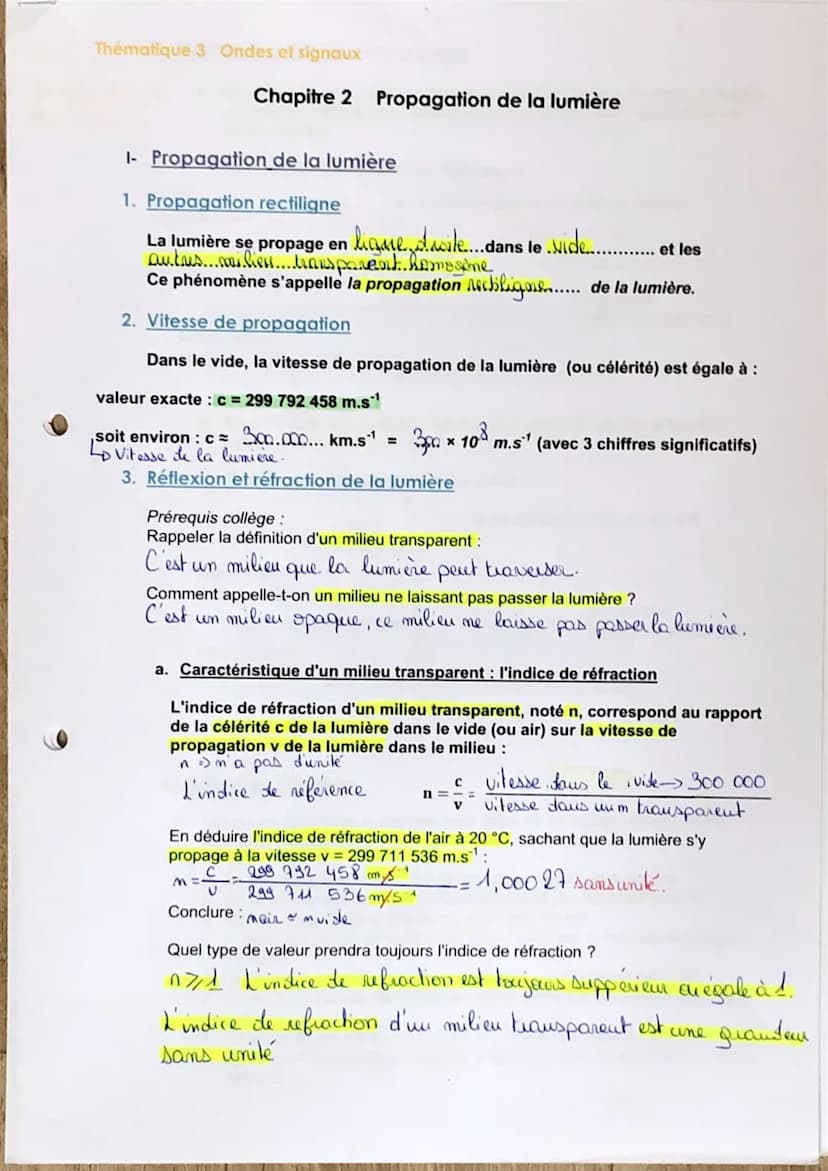 Thématique 3 Ondes et signaux
Chapitre 2 Propagation de la lumière
I- Propagation de la lumière
1. Propagation rectiligne
La lumière se propage en ligne droite...dans le .vide............ et les
autres...milieu...transparent.homogène
Ce phénomène s'appelle la propagation rectiligne....... de la lumière.
2. Vitesse de propagation
Dans le vide, la vitesse de propagation de la lumière (ou célérité) est égale à :
valeur exacte : c = 299 792 458 m.s⁻¹
soit environ : c ≈ 300.000... km.s⁻¹ = 3,00 × 10⁸ m.s⁻¹ (avec 3 chiffres significatifs)
↳ Vitesse de la lumière.
3. Réflexion et réfraction de la lumière
Prérequis collège :
Rappeler la définition d'un milieu transparent :
C'est un milieu que la lumière peut traverser.
Comment appelle-t-on un milieu ne laissant pas passer la lumière ?
C'est un milieu opaque, ce milieu ne laisse pas passer la lumière.
a. Caractéristique d'un milieu transparent : l'indice de réfraction
L'indice de réfraction d'un milieu transparent, noté n, correspond au rapport
de la célérité c de la lumière dans le vide (ou air) sur la vitesse de
propagation v de la lumière dans le milieu :
n => n'a pas d'unité
L'indice de référence
n = c/v = vitesse dans le vide → 300 000 / vitesse dans un m transparent
En déduire l'indice de réfraction de l'air à 20 °C, sachant que la lumière s'y
propage à la vitesse v = 299 711 536 m.s⁻¹ :
n = c/v = 299 792 458 m/s⁻¹ / 299 711 536 m/s⁻¹ = 1,00027 sans unité.
Conclure : nair ≈ nvide
Quel type de valeur prendra toujours l'indice de réfraction ?
n ⩾ 1 L'indice de refraction est toujours suppérieur ou égale à 1.
L'indice de refraction d'un milieu transparent est une grandeur
sans unité